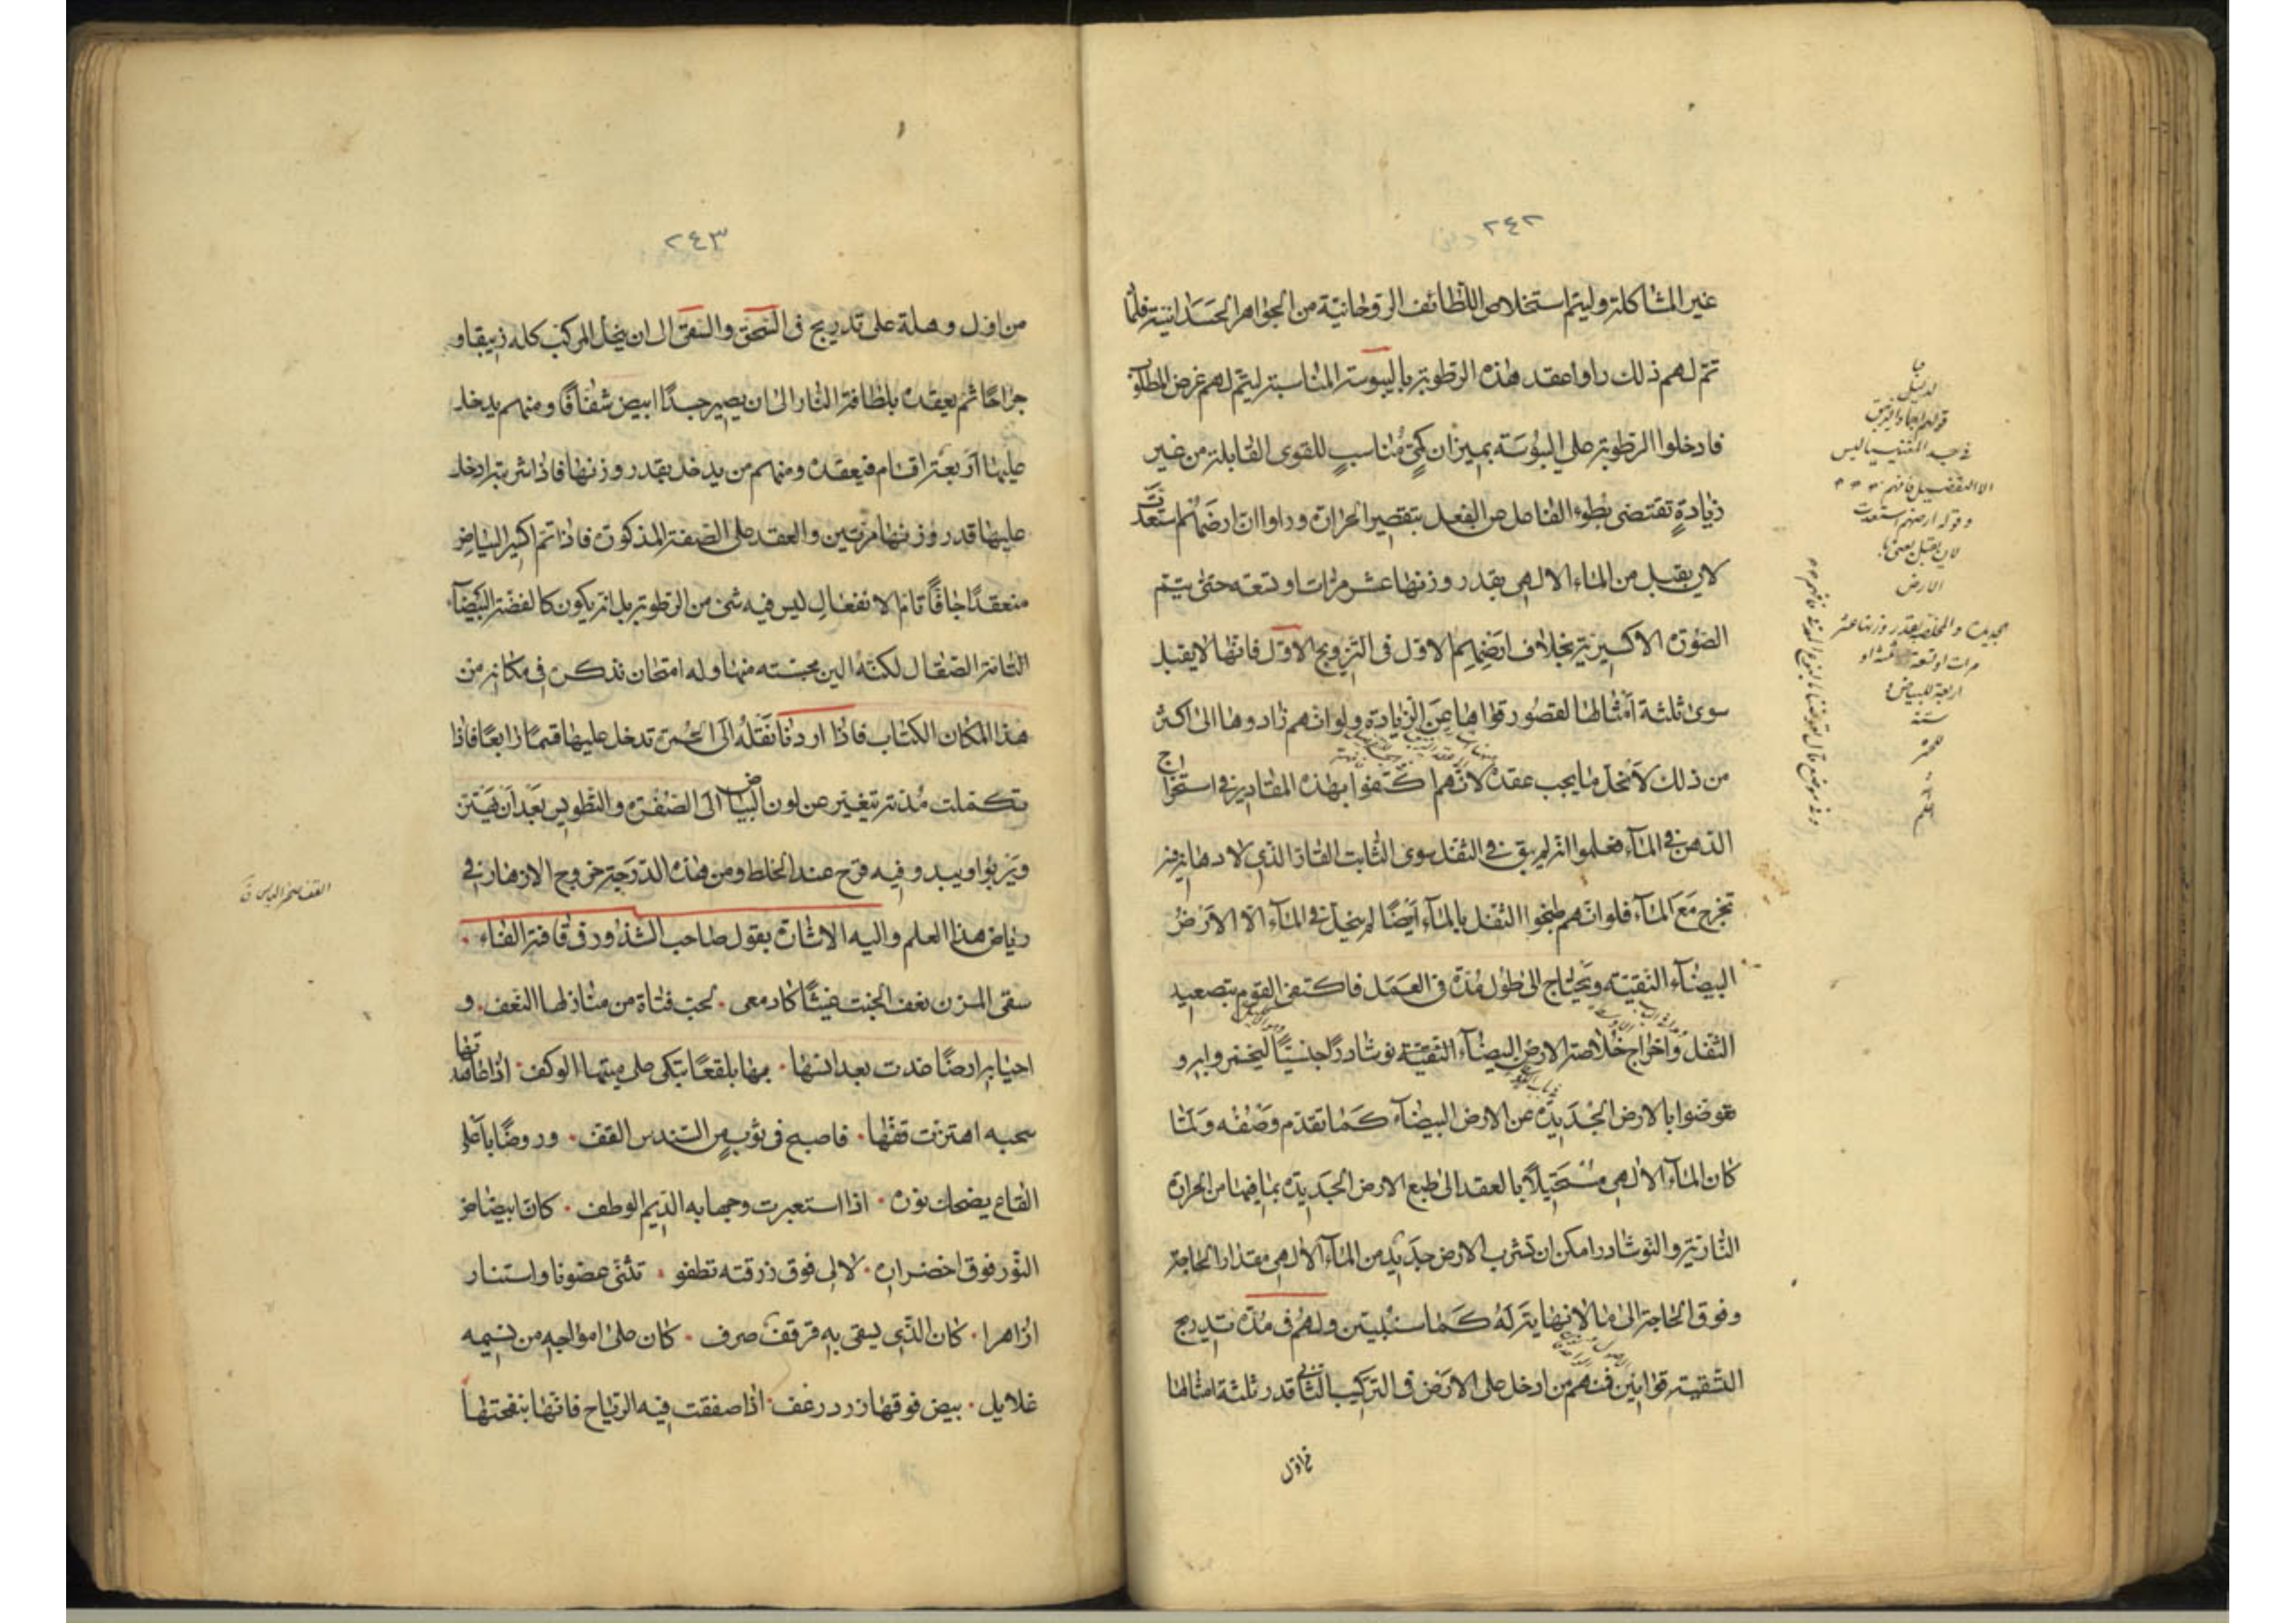 ٢٤٢
غير المشاكلة وليتم استخلاص اللطائف الروحانية من الجواهر الجسدانية فلما
تم لهم ذلك راوا عقد هذه الرطوبة باليبوسة المناسبة ليتم لهم غرض المطلوب
فادخلوا الرطوبة على اليبوسة بميزان كمي مناسب للقوى القابلة من غير
زيادة تقتضي بطوء الفاعل عن الفعل بتقصير الحرارة وراوا ان ارضهم استعدت
لان يقبل من الماء الالهي بقدر وزنها عشر مرات او تسعه حتى يتم
الصورة الاكسيرية بخلاف ارضهم الاول في التزويج الاول فانها لا يقبل
سوى ثلثة امثالها لقصور قواها عن الزيادة ولو انهم زادوها الى اكثر
من ذلك لانحل ما يجب عقده لانهم اكتفوا بهذه المقادير في استخراج
الدهن في الماء فعلموا انه لم يبق في الثفل سوى الثابت القار الذي لا دهانية فيه
تخرج مع الماء فلو انهم طبخوا الثفل بالماء ايضا لم ينحل في الماء الا الارض
البيضاء النقية ويحتاج الى طول مدة في العمل فاكتفى القوم بتصعيد
الثفل واخراج خلاصة الارض البيضاء النقية نوشادرا جنسيا ليختمروا به و
عوضوا بالارض الجديدة عن الارض البيضاء كما تقدم وصفه ولما
كان الماء الالهي مستحيلا بالعقد الى طبع الارض الجديدة بما فيها من الحرارة
النارية والنوشادر امكن ان تشرب الارض جديد من الماء الالهي مقدار الحاجة
وفوق الحاجة الى ما لا نهاية له كما سنبين ولهم في مدة تدريج
التسقية قوانين فمنهم من ادخل على الارض في التركيب الثاني قدر ثلثة امثالها
من اول
في جسد المغنيسيا ليس
الا التفصيل فافهم
وقوله ارضهم استعدت
لان يقبل يعني بها
الارض
الجديدة والمخلص بقدر وزنها عشر
مرات او تسعة او
اربعة للبياض و
ستة
للحمرة
٢٤٣
من اول وهلة على تدريج في السحق والسقي الى ان ينحل المركب كله زيبقا و
جراحا ثم يعقده بلطافة النار الى ان يصير جسدا ابيض شفافا ومنهم يدخل
عليها اربعة اقسام فيعقده ومنهم من يدخل بقدر وزنها فاذا شربته ادخل
عليها قدر وزنها مرتين والعقد على الصفة المذكورة فاذا تم اكسير البياض
منعقدا جافا تام الانفعال ليس فيه شئ من الرطوبة بل انه يكون كالفضة البيضاء
التامة الصقال لكنه الين مجسته منها وله امتحان نذكره في مكانه من
هذا المكان الكتاب فاذا اردنا نقله الى الحمرة تدخل عليها قسما رابعا فاذا
تكملت مدته تتغير عن لون البياض الى الصفرة والتطويس بعد ان يهتز
ويربو ويبدو فيه فرح عند الخلط ومن هذه الدرجة خروج الازهار في
رياض هذا العلم واليه الاشارة بقول صاحب الشذور في قافية الفاء
سقى المزن نعف الجنت غيثا كادمعى ٠ لحب فتاة من منازلها النعف ٠ و
احيا به ارضا غدت بعد انسها ٠ بها بلقعا تبكي على ميتها الوكف ٠ اذا طامنتها
سحبه اهتزت قفها ٠ فاصبح في ثوب من السندس القف ٠ وروضا باعلى
القاع يضحك نوره ٠ اذا استعبرت وجها به الديم الوطف ٠ كان ابيضاض
النور فوق اخضراره ٠ لالى فوق زرقته تطفو ٠ تثنى غصونا واستنار
ازاهرا ٠ كان الذي يسقى به قرقف صرف ٠ كان على امواجه من نسيمه
غلايل ٠ بيض فوقها زرد زغف ٠ اذا صفقت فيه الرياح فانها بنفحتها